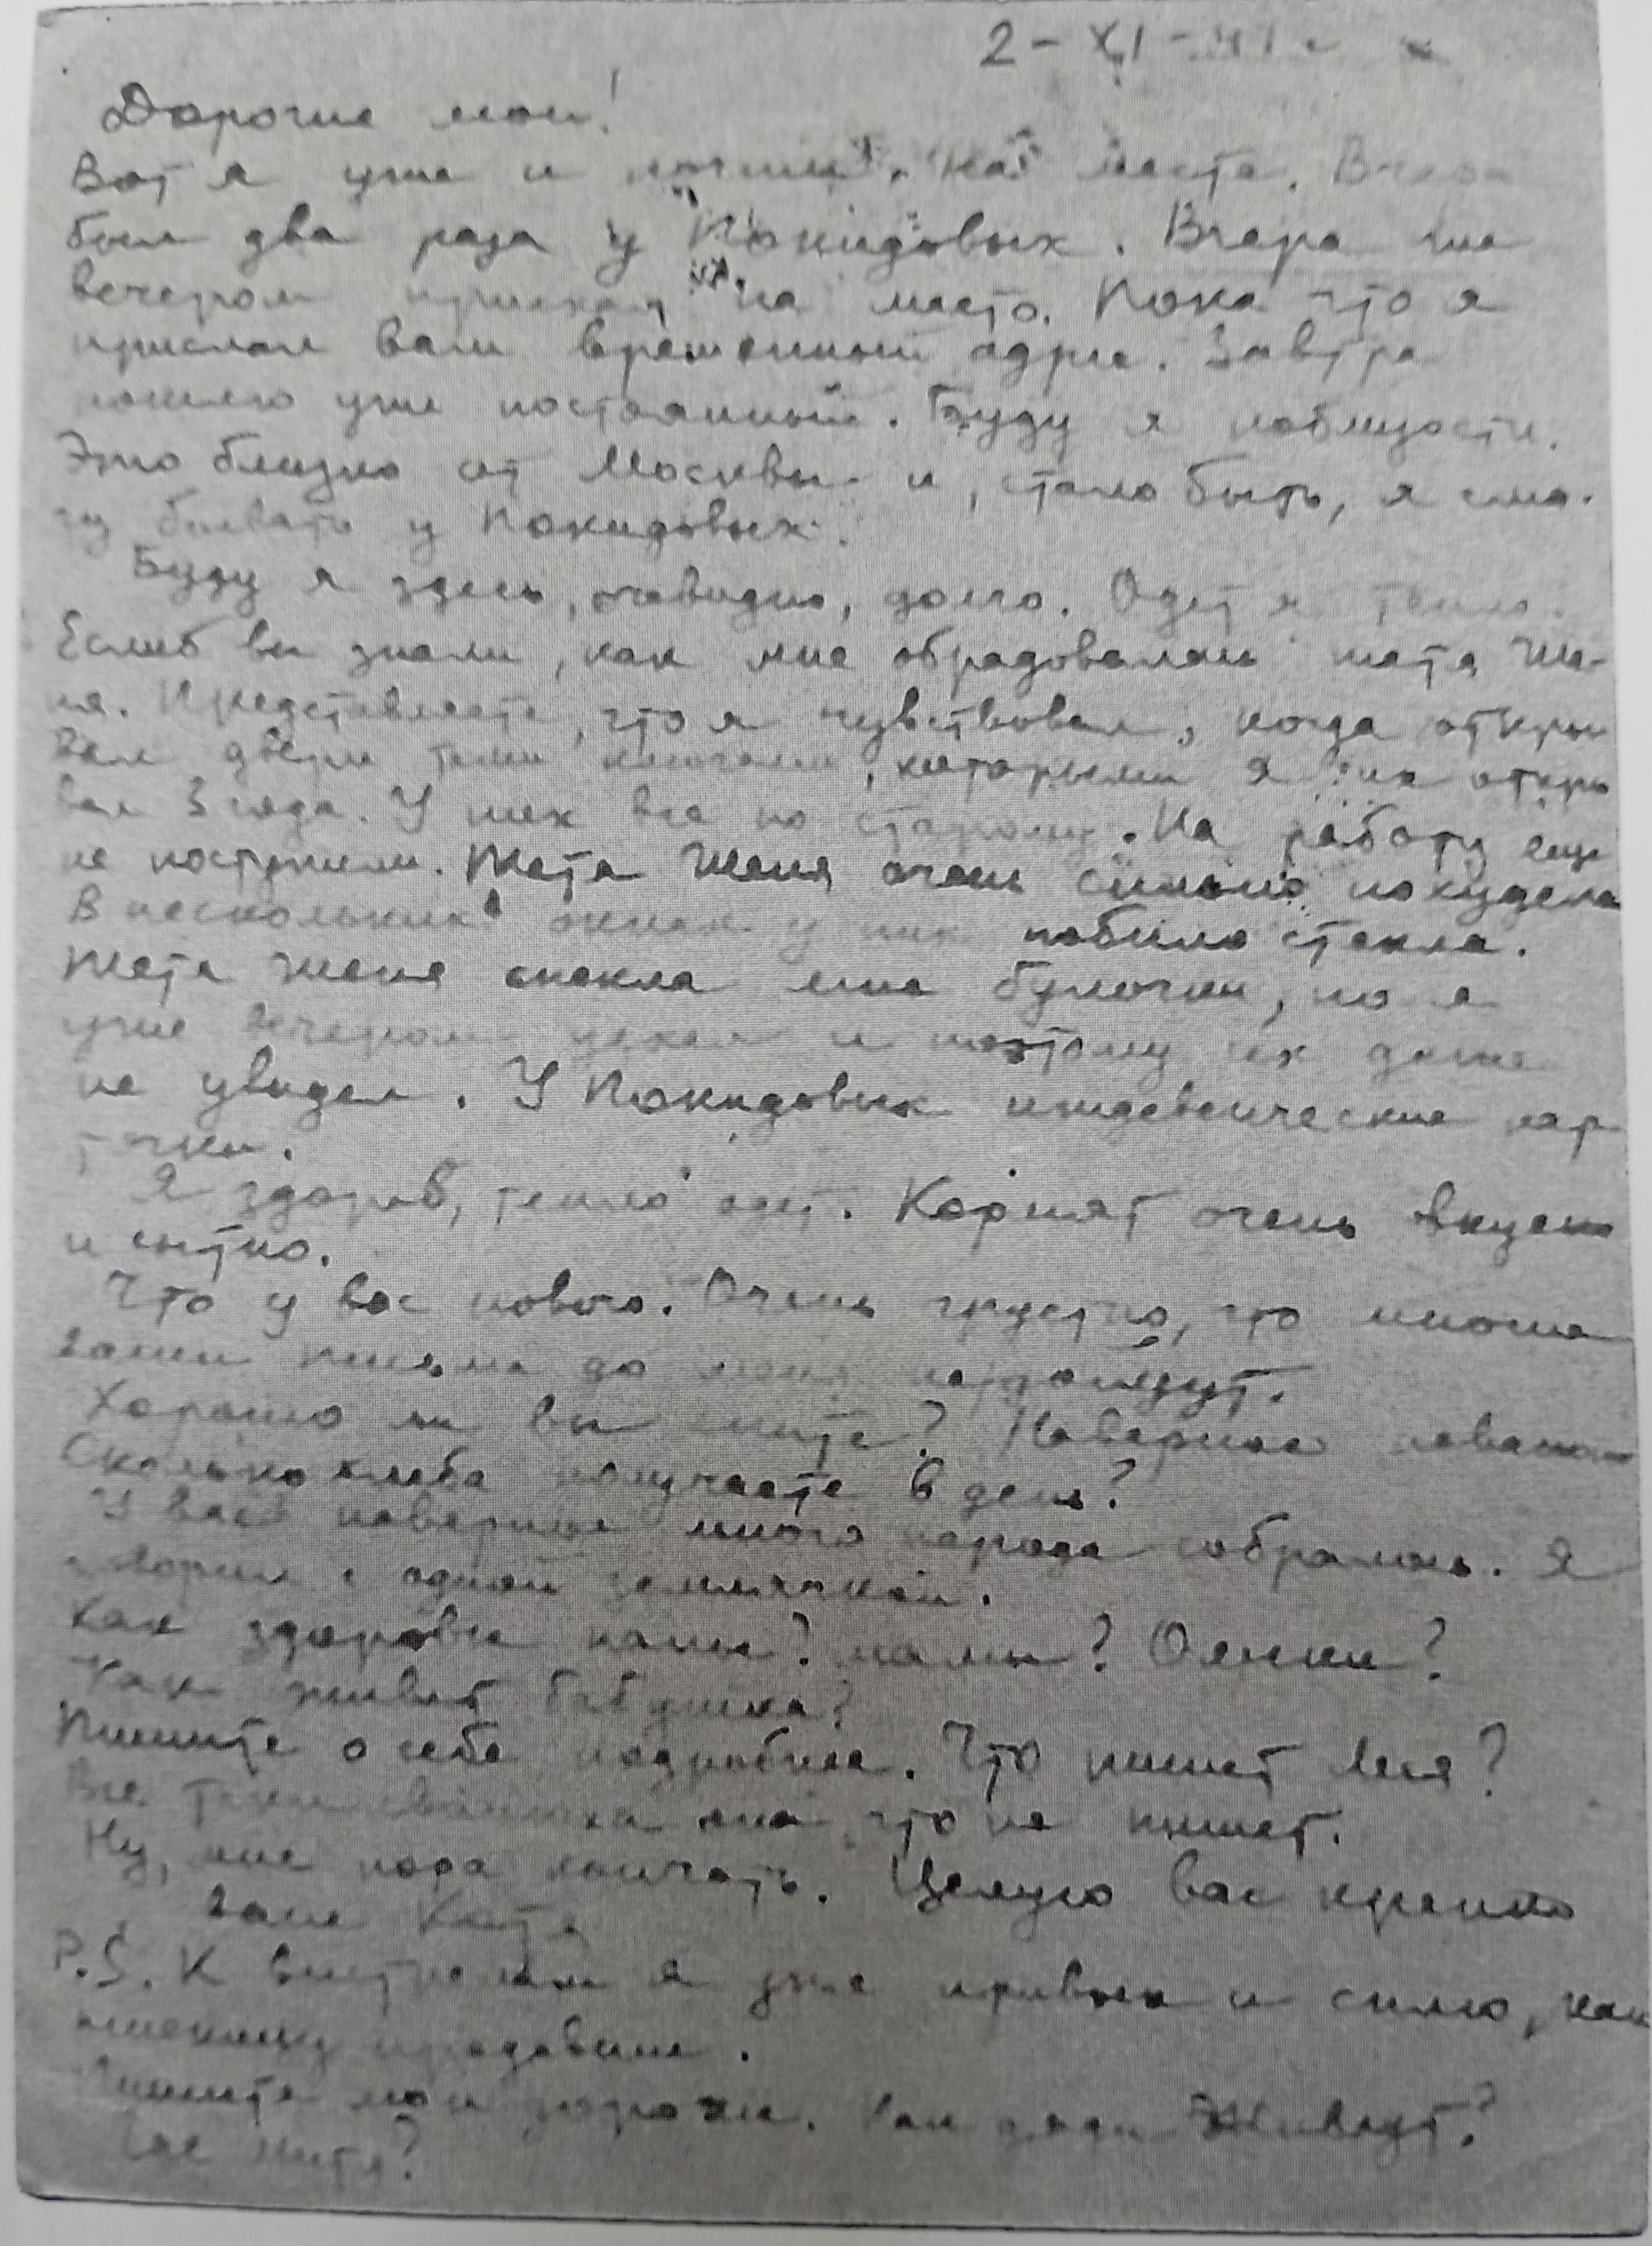 2-XI-41г
Дорогие мои!
Вот я уже и почти на месте. Вчера
был два раза у Покидовых. Вчера же
вечером приехал на место. Пока что я
прислал вам временный адрес. Завтра
пошлю уже постоянный. Буду я поблизости.
Это близко от Москвы и, стало быть, я смо-
гу бывать у Покидовых.
Буду я здесь, очевидно, долго. Одет я тепло.
Если б вы знали, как мне обрадовалась тетя Же-
ня. Представляете, что я чувствовал, когда откры
вал двери теми ключами, которыми я их откры
вал 3 года. У них все по старому. На работу еще
не поступили. Тетя Женя очень сильно похудела
В нескольких окнах у них побило стекла.
Тетя Женя спекла мне булочки, но я
уже вечером уехал и поэтому их даже
не увидел. У Покидовых иждивенческие кар
точки.
Я здоров, тепло одет. Кормят очень вкусно
и сытно.
Что у вас нового. Очень грустно, что
ваши письма до меня не дойдут.
Хорошо ли вы? Наверное
Сколько хлеба получаете в день?
У вас наверное много народа собралось. Я
говорил с одной землячкой.
Как здоровье папы? мамы? Оленьки?
Как живет бабушка?
Пишите о себе подробнее. Что пишет Леля?
Все таки она, что не пишет.
Ну, мне пора кончать. Целую вас крепко
ваш
P.S. К я уже привык и сплю, как
Пишите мои дорогие. Как дяди живут?
Где Митя?